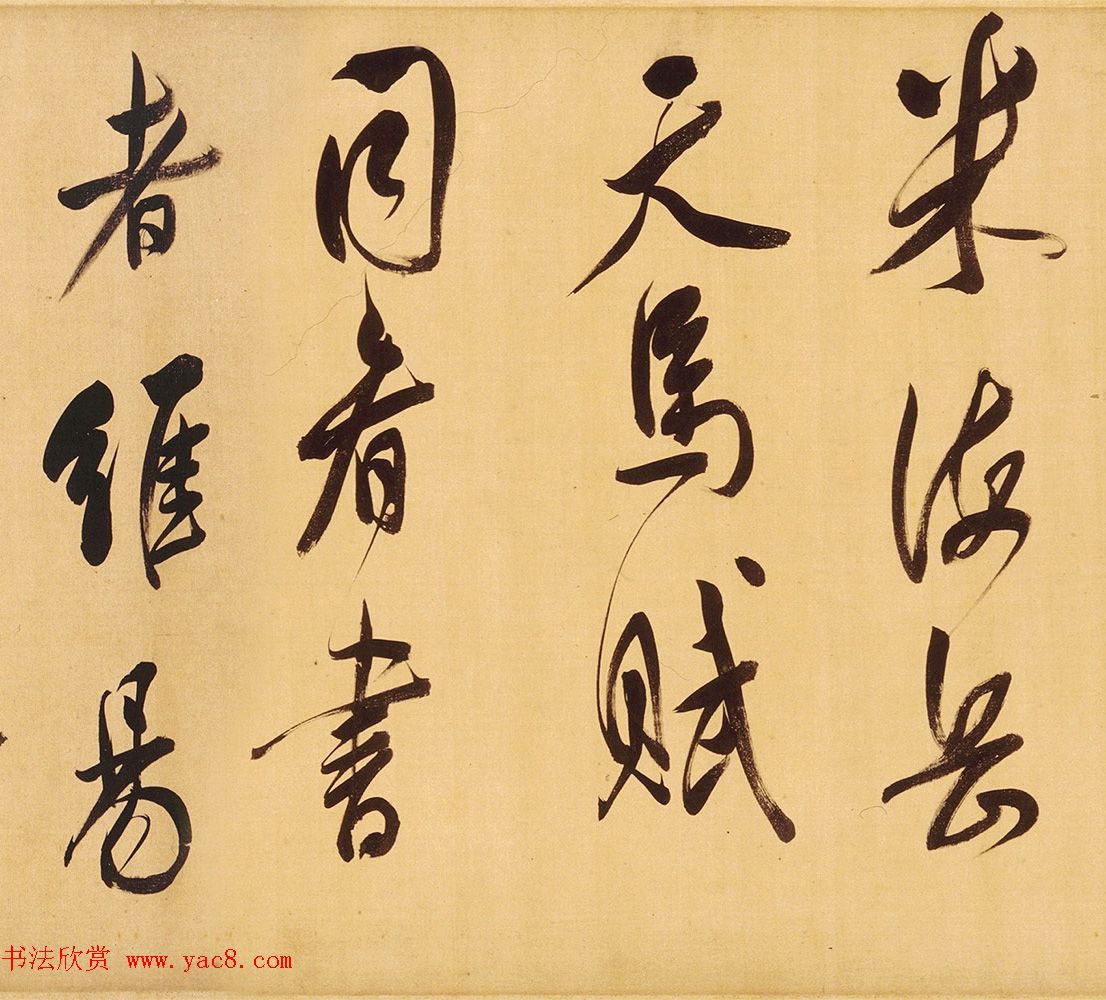 米海岳
天馬賦
同看書
者維易
书法欣赏 www.yac8.com